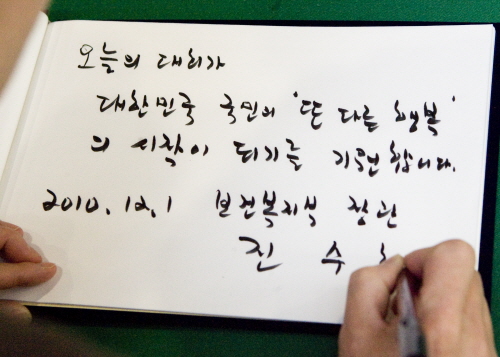 오늘의 대회가
대한민국 국민의 '또 다른 행복'
의 시작이 되기를 기원합니다.
2010. 12. 1 보건복지부 장관
진 수